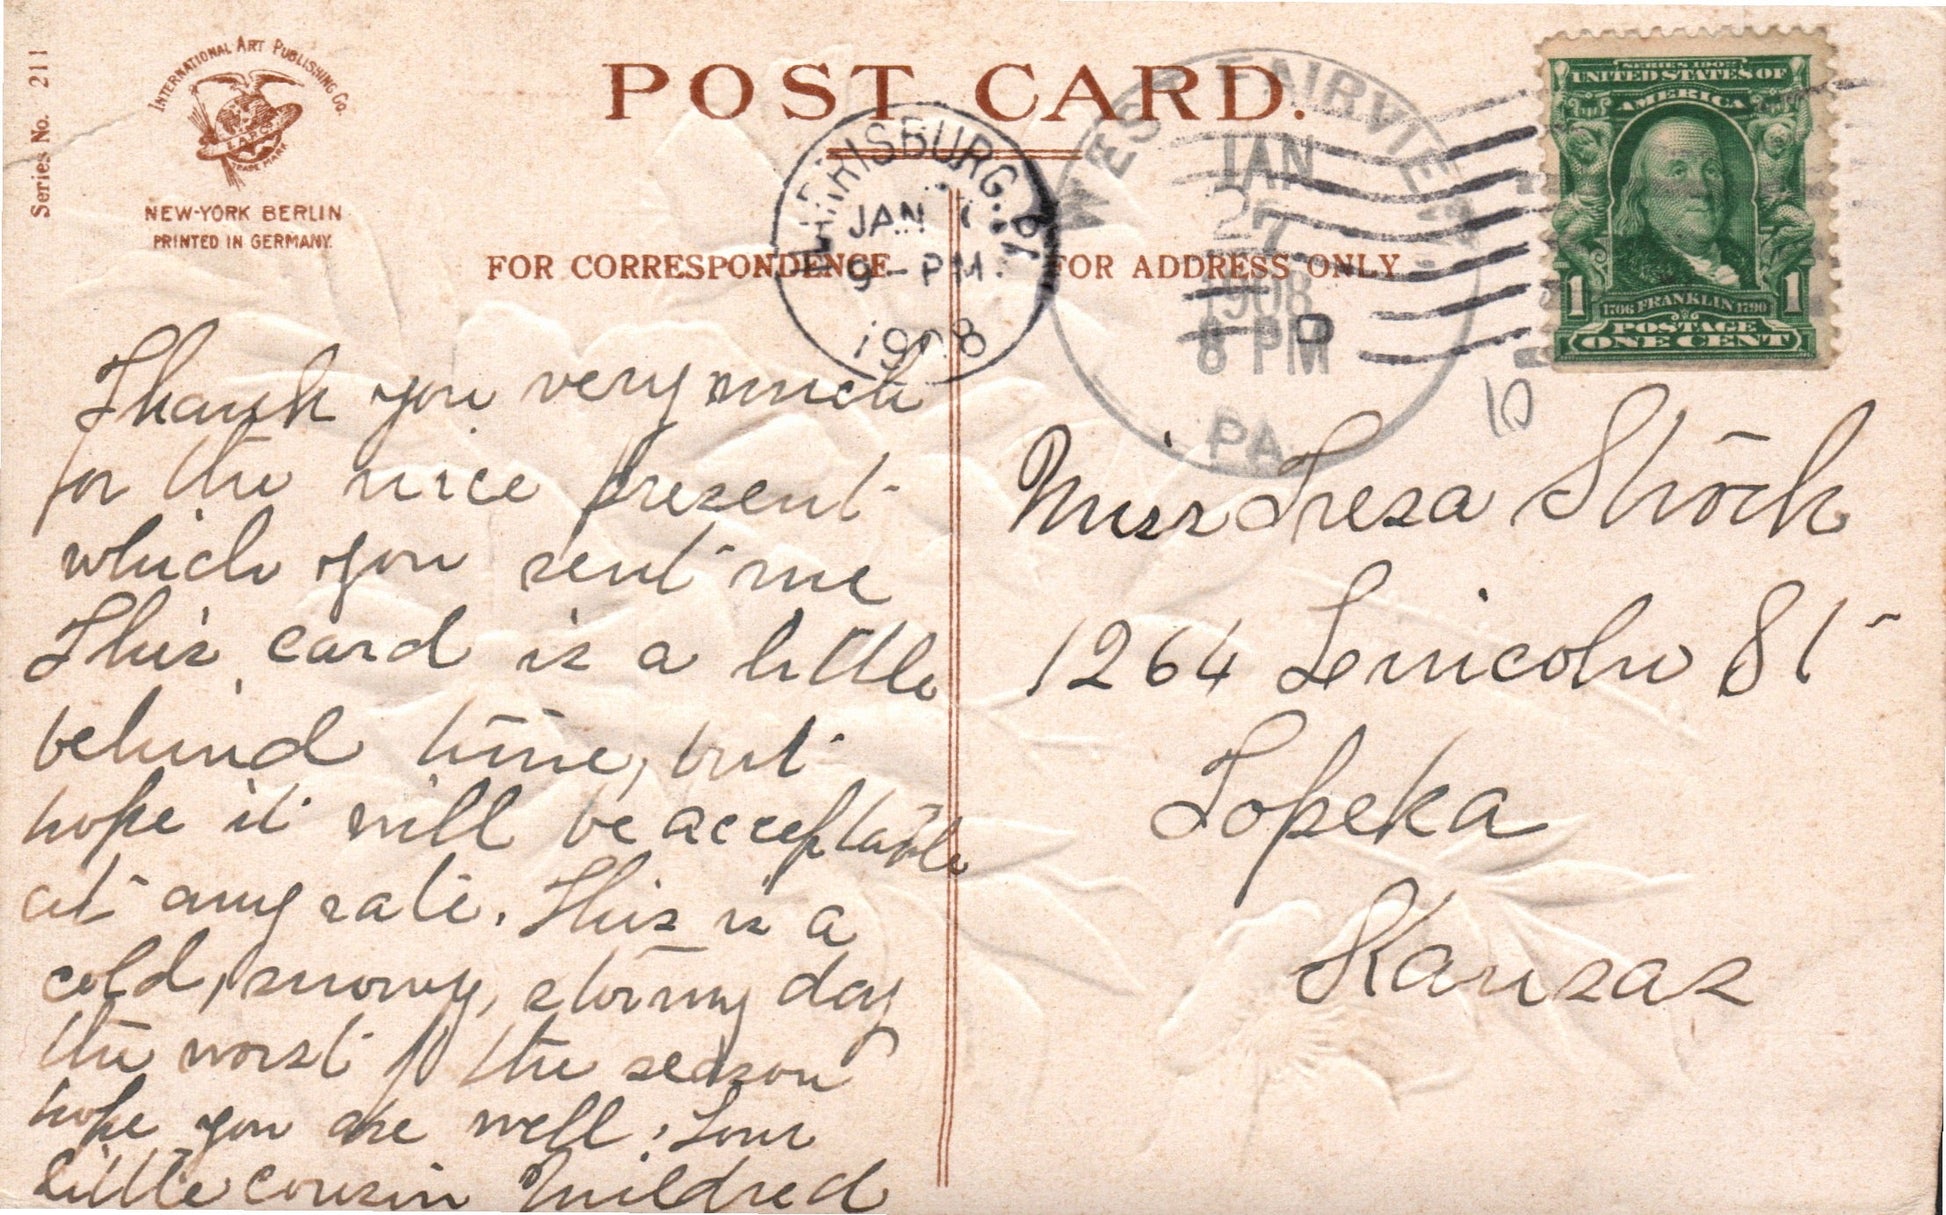 Series No. 211
INTERNATIONAL ART PUBLISHING CO.
TRADE MARK
NEW-YORK BERLIN
PRINTED IN GERMANY.
POST CARD.
FOR CORRESPONDENCE
FOR ADDRESS ONLY
HARRISBURG. PA.
JAN
9 - PM.
1908
WEST FAIRVIEW
JAN
27
1908
8 PM
PA.
SERIES 1902
UNITED STATES OF
AMERICA
1 1706 FRANKLIN 1790 1
POSTAGE
ONE CENT
Thank you very much
for the nice present
which you sent me
This card is a little
behind time, but
hope it will be acceptable
at any rate. This is a
cold, snowy, stormy day
the worst of the season
hope you are well. Your
little cousin Mildred
Miss Tresa Strock
1264 Linicoln St
Topeka
Kansas